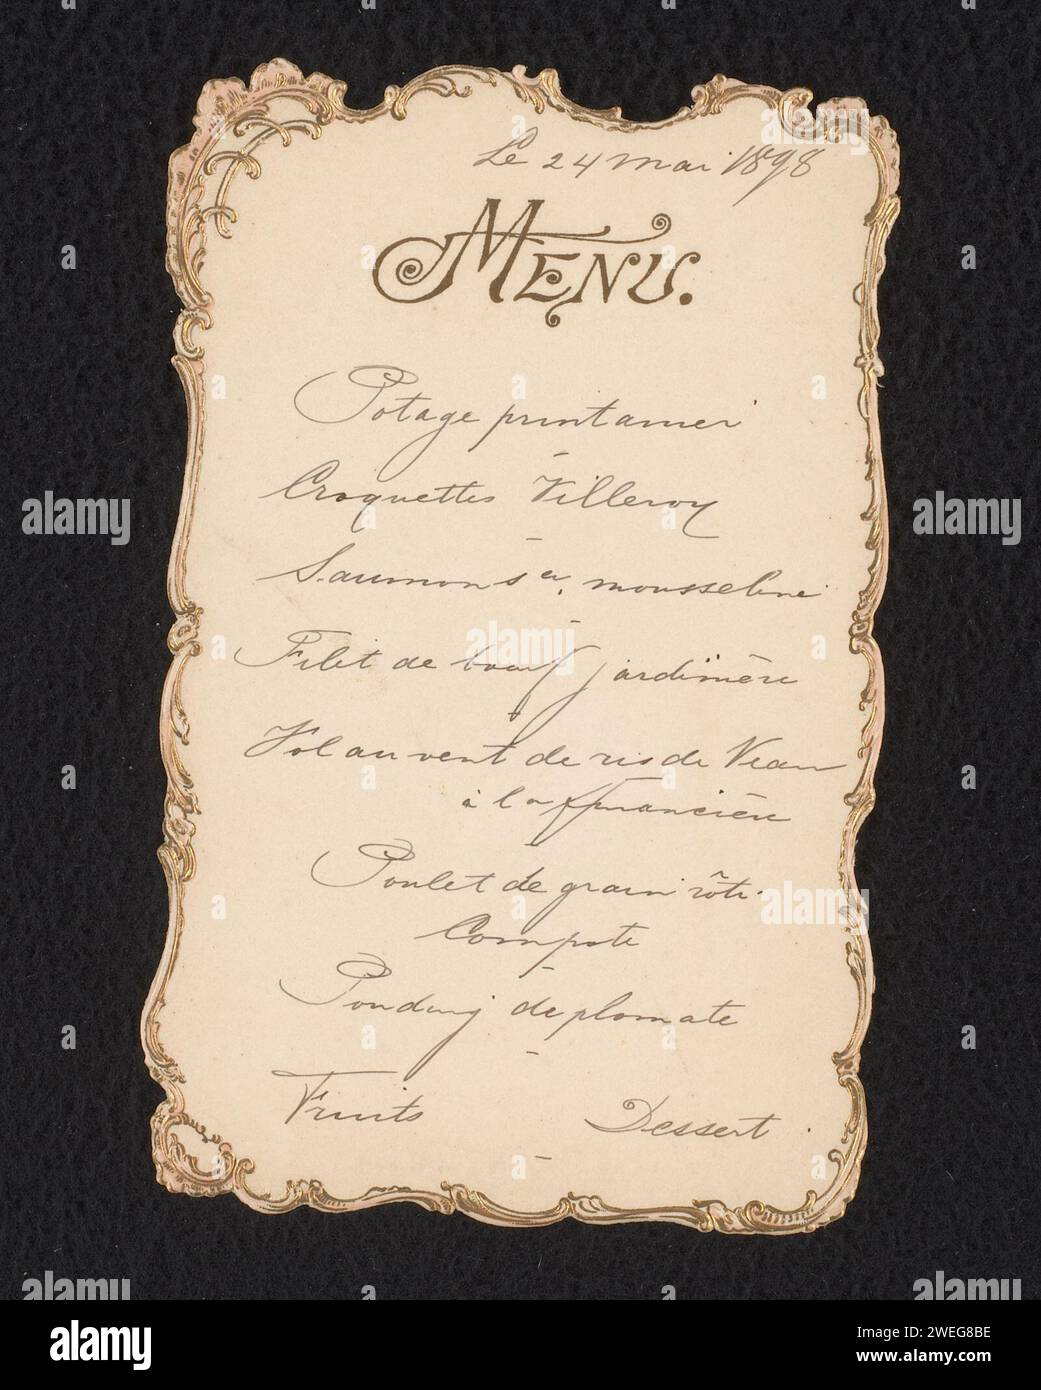 Le 24 Mai 1898
MENU.
Potage printanier
Croquettes Villeroy
Saumon sce. mousseline
Filet de boeuf jardinière
Vol au vent de ris de Veau
à la financière
Poulet de grain rôti.
Compote
Pouding diplomate
Fruits Dessert.
alamy
Image ID: 2WEG8BE
www.alamy.com